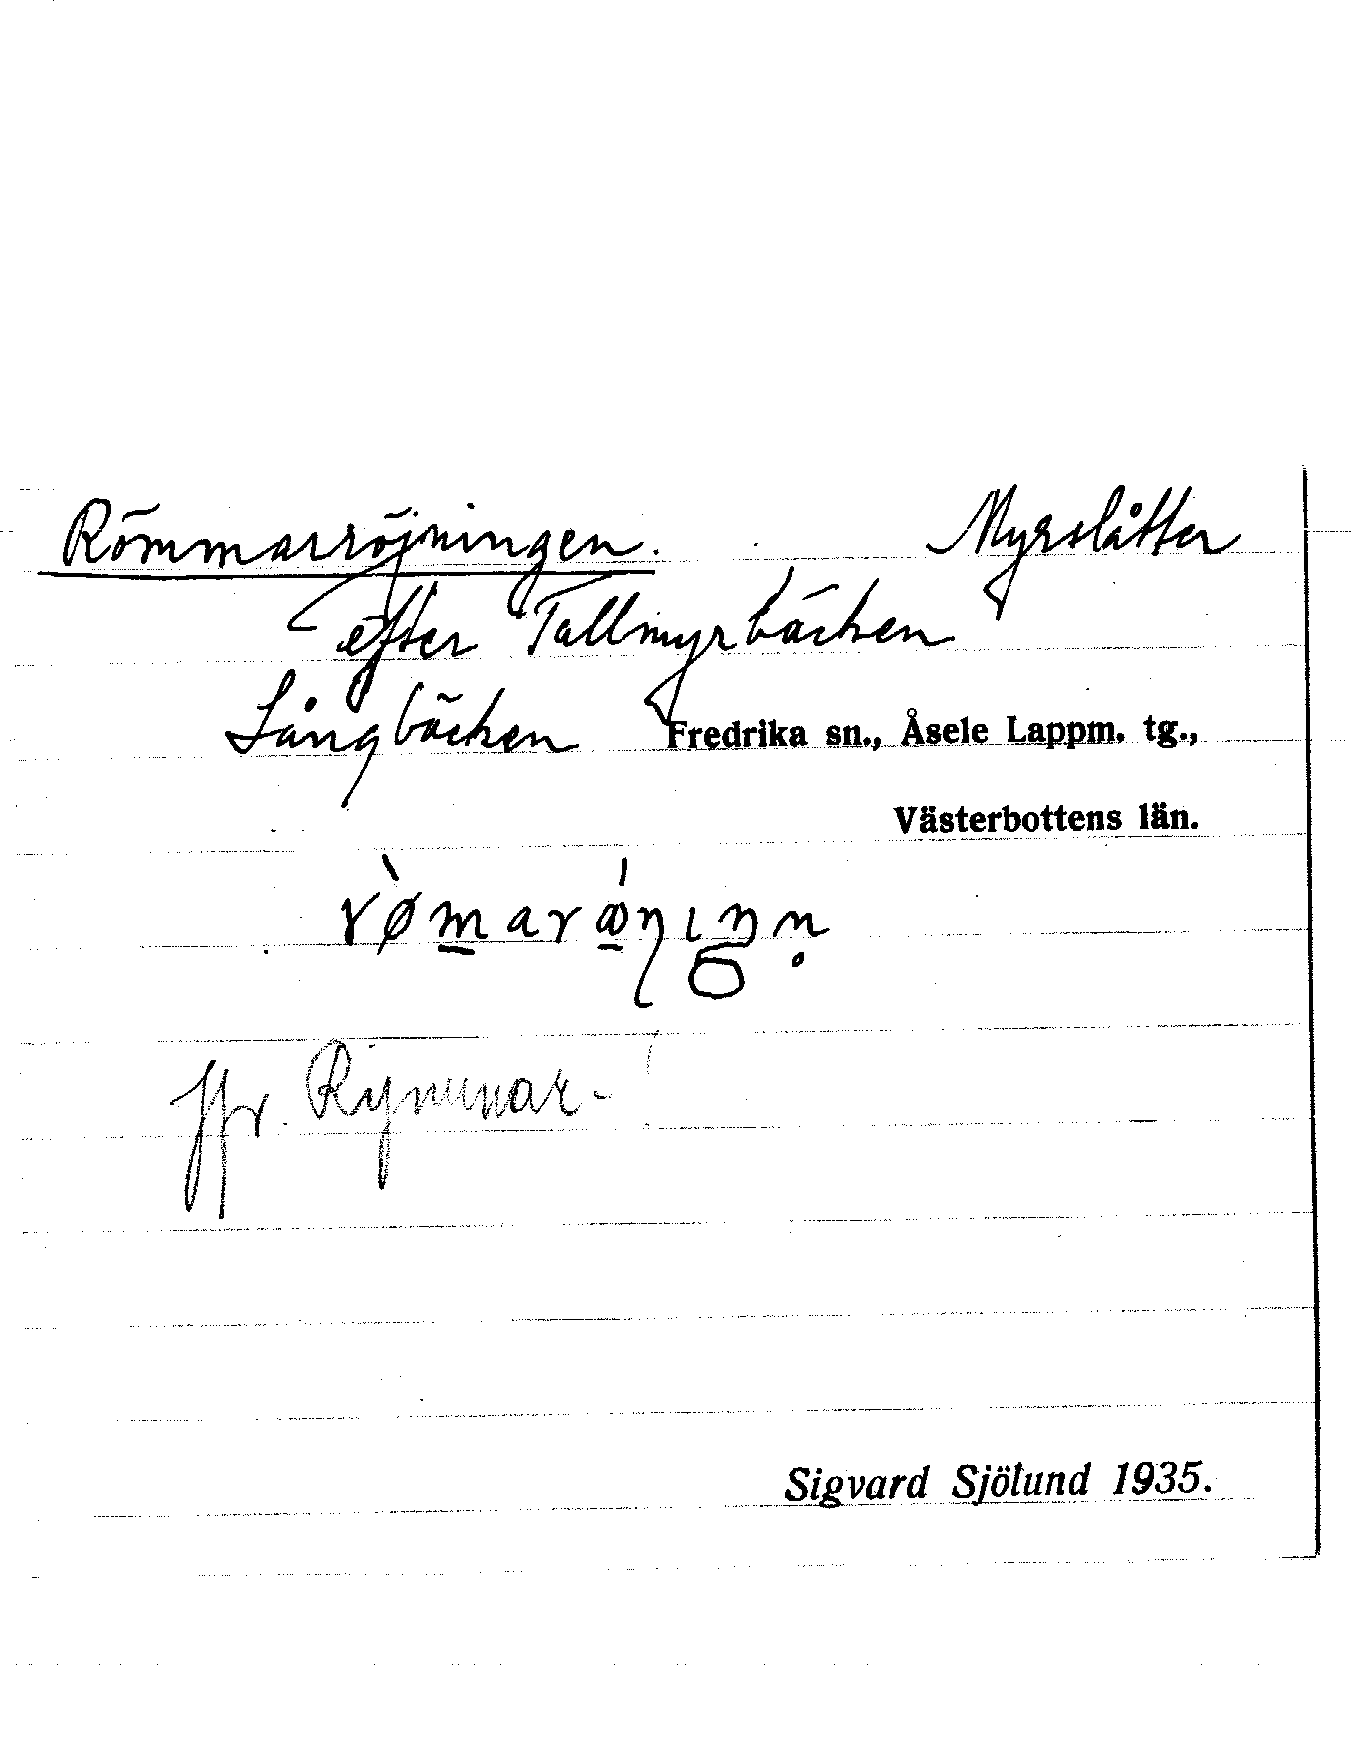 Römmarröjningen. Myrslåtter
efter Tallmyrbäcken
Långbäcken Fredrika sn., Åsele Lappm. tg.,
Västerbottens län.
jfr. Rymmar-
Sigvard Sjölund 1935.